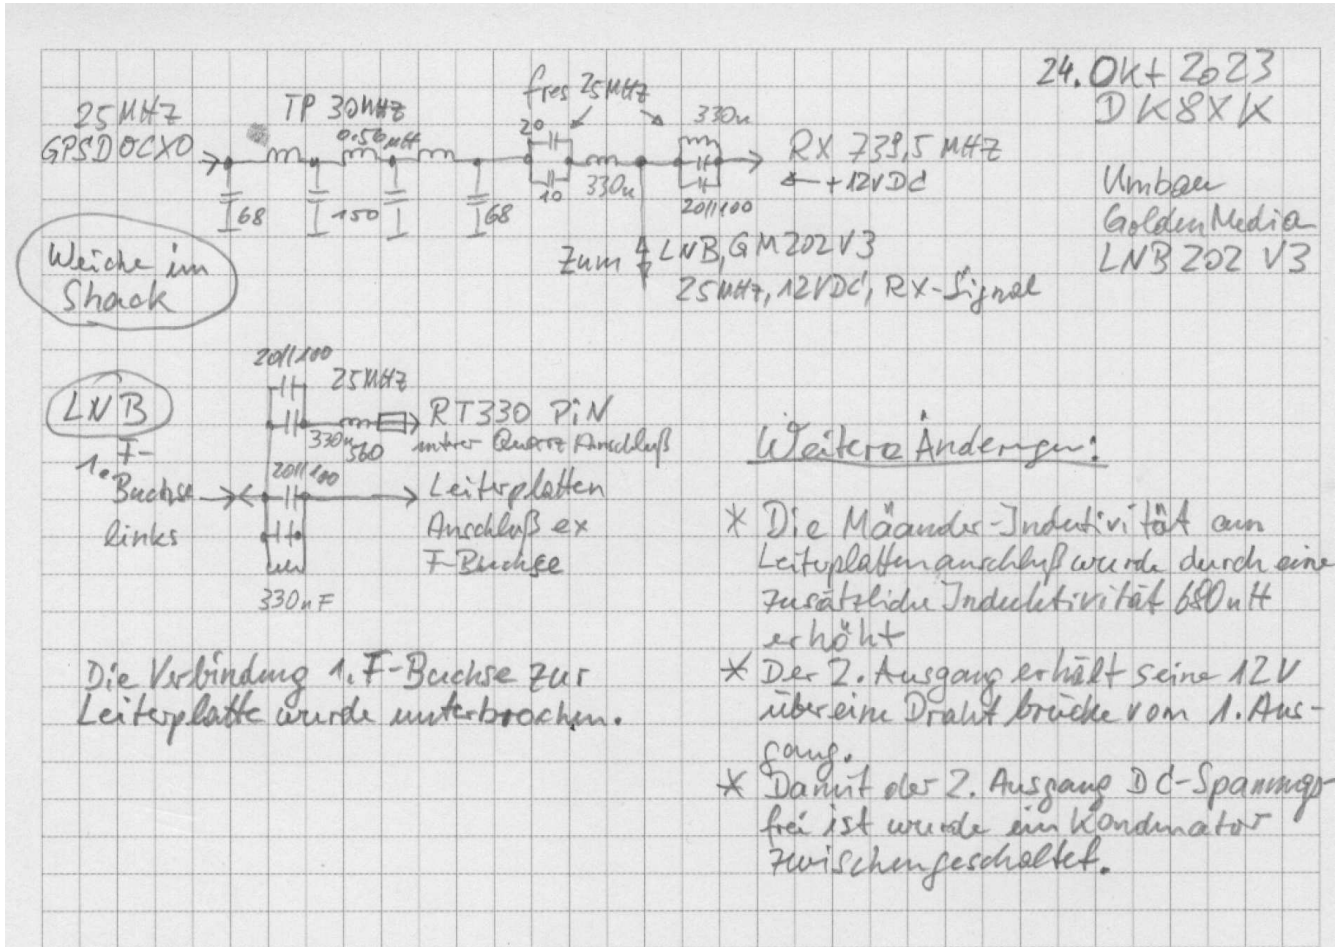 24. Okt 2023
DK8XK
Umbau
GoldenMedia
LNB 202 V3
25MHZ
GPSDOCXO
TP 30MHZ
0.56µH
fres 25MHZ
20
10
330n
330n
20||100
RX 739,5 MHZ
+12VDC
68
150
68
Zum LNB, GM202 V3
25MHz, 12VDC, RX-Signal
Weiche im
Shack
LNB
20||100
25MHZ
330n
560
RT330 PiN
unterer Quarz Anschluß
1. F-
Buchse
links
20||100
330nF
Leiterplatten
Anschluß ex
F-Buchse
Die Verbindung 1. F-Buchse zur
Leiterplatte wurde unterbrochen.
Weitere Änderungen:
* Die Mäander-Indutivität am
Leiterplattenanschluß wurde durch eine
zusätzliche Induktivität 680nH
erhöht
* Der 2. Ausgang erhält seine 12V
über eine Drahtbrücke vom 1. Aus-
gang.
* Damit der 2. Ausgang DC-Spannungs-
frei ist wurde ein Kondensator
zwischengeschaltet.